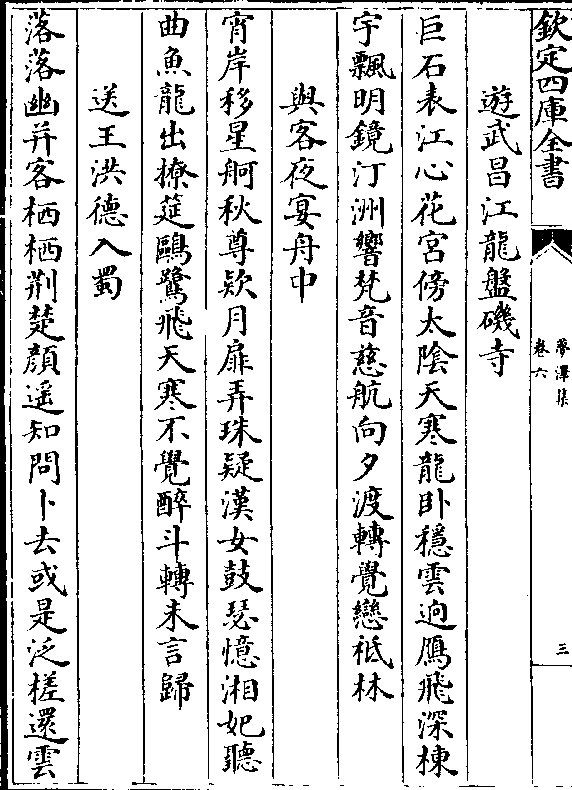 欽定四庫全書
夢澤集
卷六
三
遊武昌江龍盤磯寺
巨石表江心花宮傍太陰天寒龍卧穩雲逈鴈飛深棟
宇飄明鏡汀洲響梵音慈航向夕渡轉覺戀祗林
與客夜宴舟中
宵岸移星舸秋尊欵月扉弄珠疑漢女鼓瑟憶湘妃聽
曲魚龍出撩筵鷗鷺飛天寒不覺醉斗轉未言歸
送王洪德入蜀
落落幽并客栖栖荆楚顔遥知問卜去或是泛槎還雲